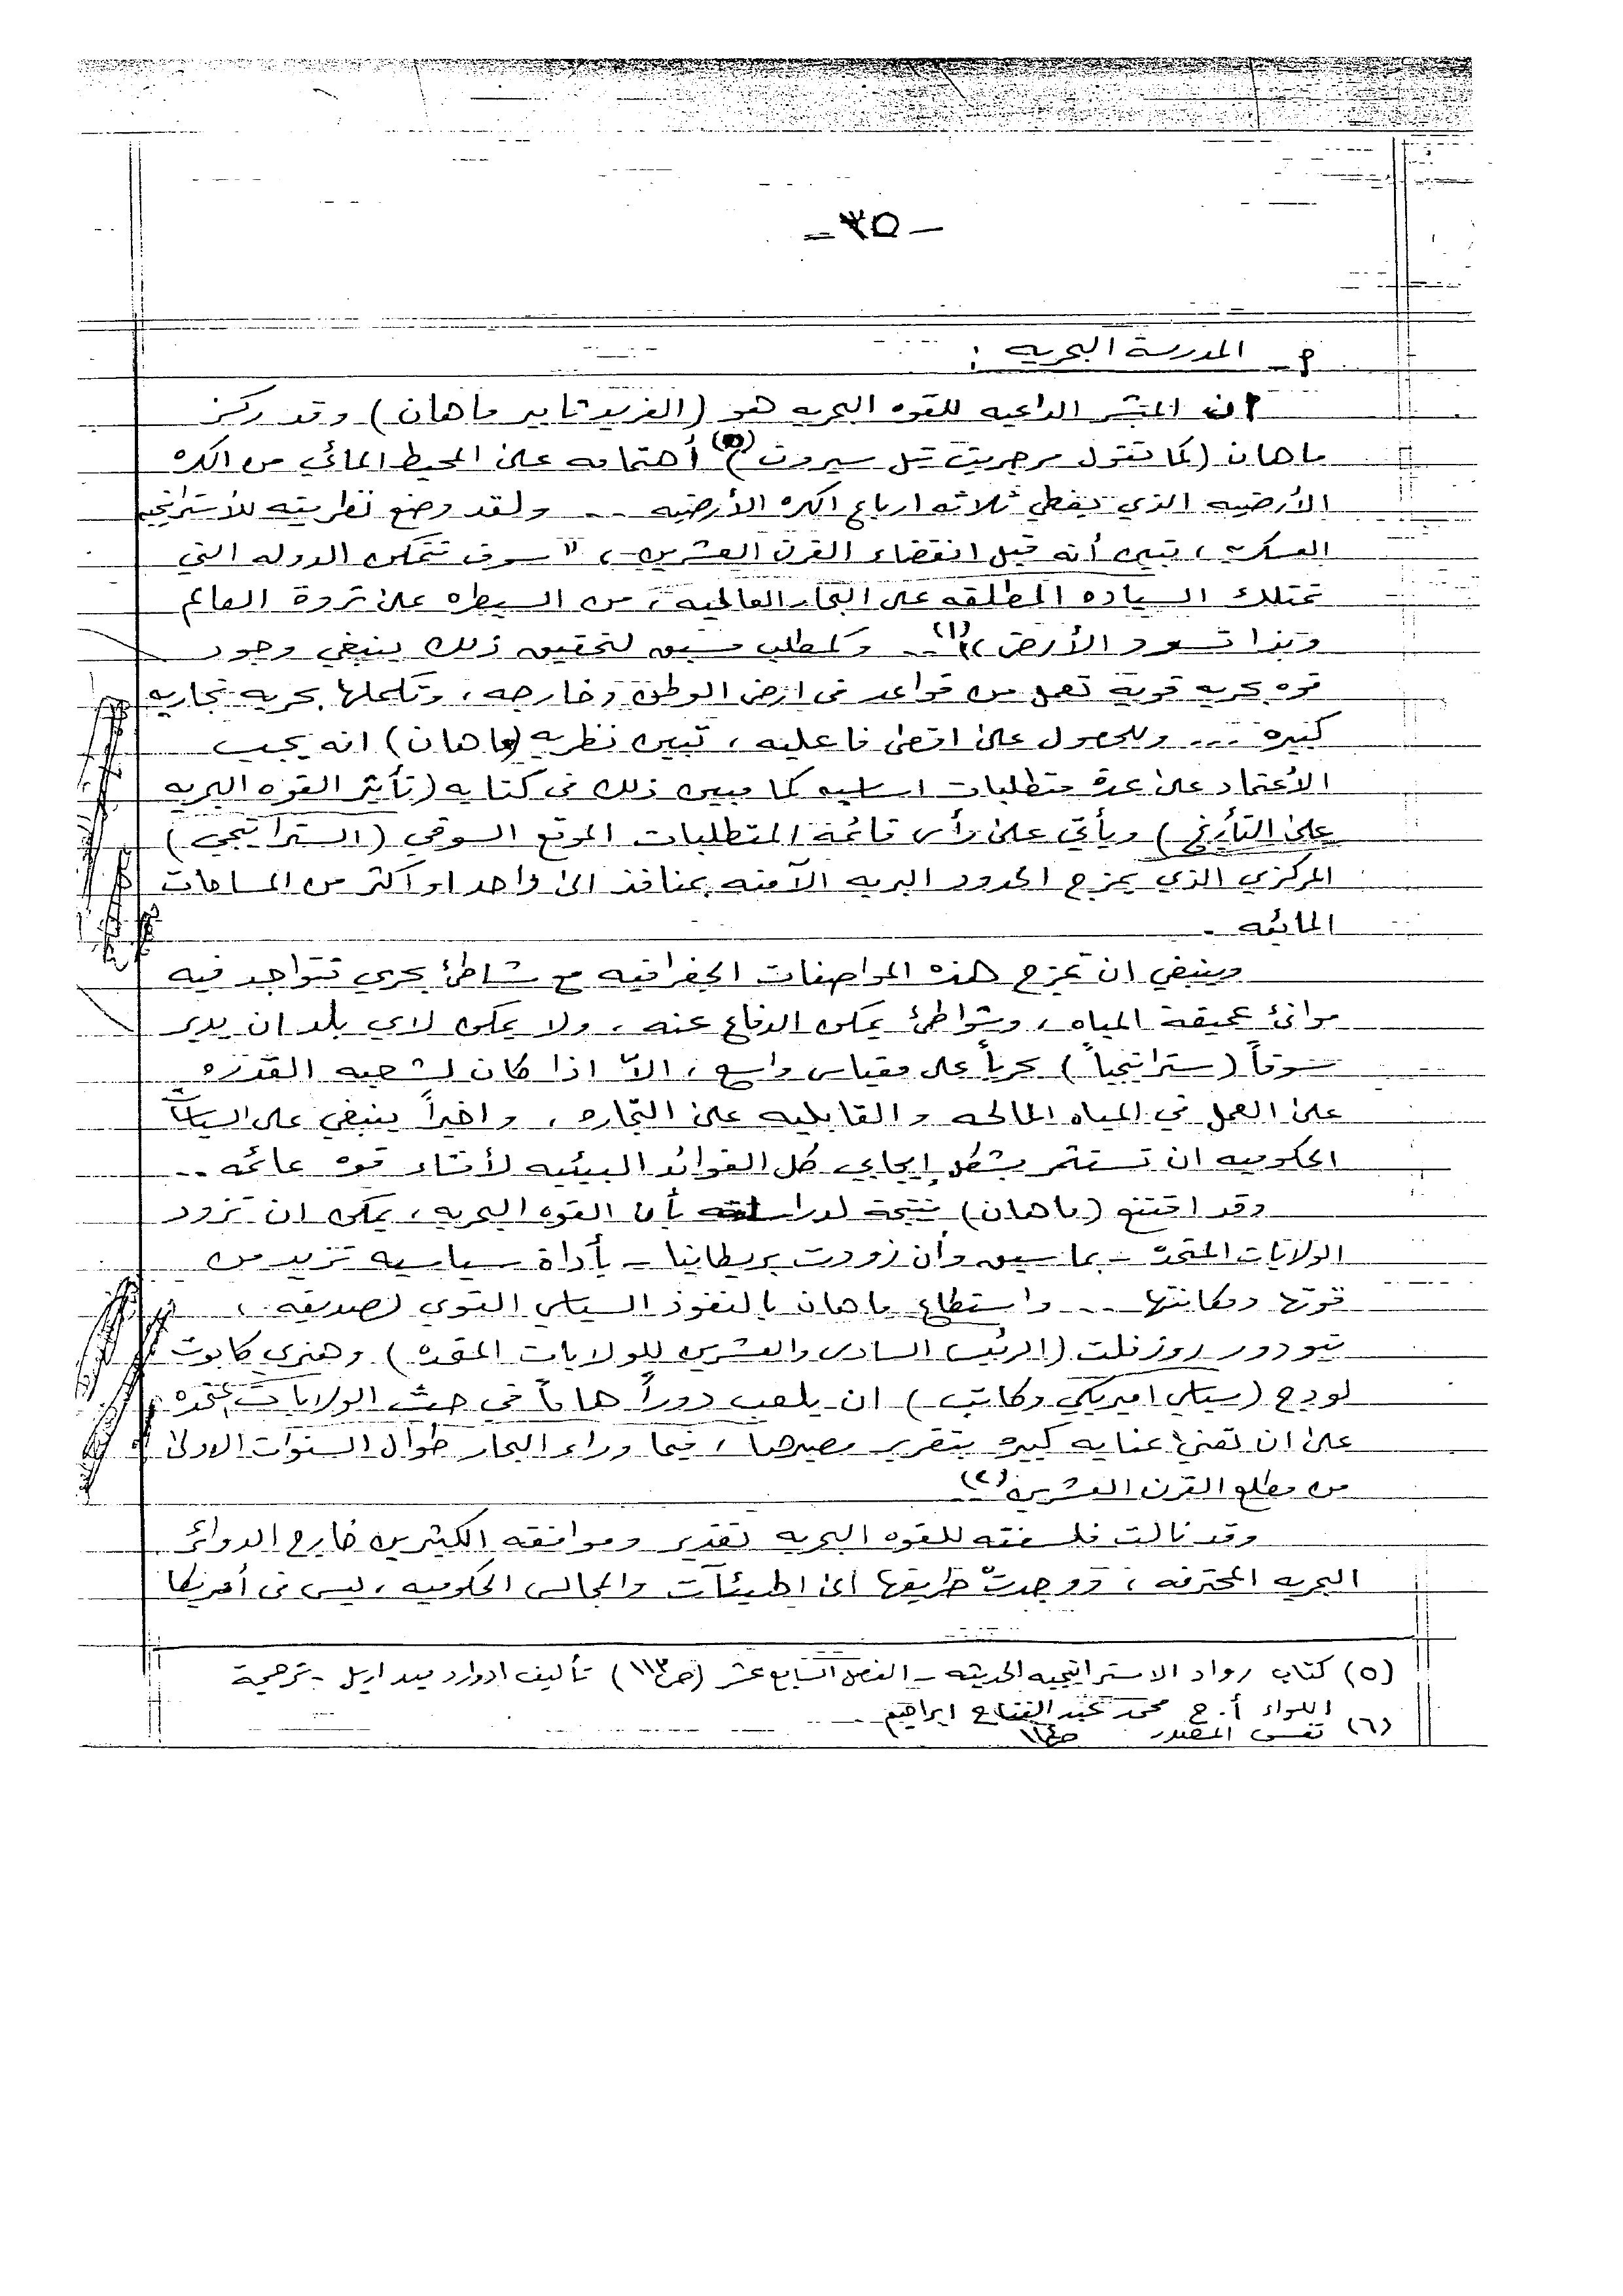 - ٣٥ -
م - المدرسة البحريه :
ان المبشر الداعيه للقوه البحريه هو (الفريد ثاير ماهان) وقد ركز
ماهان (كما تقول مرجريت تتل سبروت)(٥) أهتمامه على المحيط المائي من الكره
الأرضيه الذي يغطي ثلاثه ارباع الكره الأرضيه ... ولقد وضع نظريته للأستراتيجيه
العسكريه ، تبين أنه قبل انقضاء القرن العشرين ، " سوف تتمكن الدوله التي
تمتلك السياده المطلقه على البحار العالميه ، من السيطره على ثروة العالم
وبذا تسود الأرض "(٦) .. وكمطلب مسبق لتحقيق ذلك ينبغي وجود
قوه بحريه قوية تعمل من قواعد في ارض الوطن وخارجه ، وتكملها بحريه تجاريه
كبيره ... وللحصول على اقصى فاعليه ، تبين نظريه (ماهان) انه يجب
الأعتماد على عدة متطلبات اساسيه كما مبين ذلك في كتابه (تأثير القوه البحريه
على التأريخ) ويأتي على رأس قائمة المتطلبات الموقع السوقي (الستراتيجي)
المركزي الذي يمزج الحدود البريه الآمنه بمنافذ الى واحد او اكثر من المساحات
المائيه .
وينبغي ان تمزج هذه المواصفات الجغرافيه مع شاطئ بحري تتواجد فيه
موانئ عميقة المياه ، وشواطئ يمكن الدفاع عنه ، ولا يمكن لاي بلد ان يدير
سوقاً (ستراتيجياً) بحرياً على مقياس واسع ، الاّ اذا كان لشعبه القدره
على العمل في المياه المالحه والقابليه على التجاره ، واخيراً ينبغي على السياسات
الحكوميه ان تستثمر بشكل إيجابي كل الفوائد البيئيه لأنشاء قوه عائمه ..
وقد اقتنع (ماهان) نتيجة لدراسته بأن القوه البحريه ، يمكن ان تزود
الولايات المتحدة - بما سبق وأن زودت بريطانيا - بأداة سياسيه تزيد من
قوتها ومكانتها ... واستطاع ماهان بالنفوذ السياسي القوي لصديقه ،
تيودور روزفلت (الرئيس السادس والعشرين للولايات المتحده) وهنري كابوت
لودج (سياسي اميريكي وكاتب) ان يلعب دوراً هاماً في حث الولايات المتحده
على ان تعني عنايه كبيره بتقرير مصيرها ، فيما وراء البحار طوال السنوات الاولى
من مطلع القرن العشرين(٢)
وقد نالت فلسفته للقوه البحريه تقدير وموافقه الكثيرين خارج الدوائر
البحريه المحترفه ، ووجدت طريقها الى الهيئآت والمجالس الحكوميه ، ليس في أمريكا
(٥) كتاب رواد الاستراتيجيه الحديثه - الفصل السابع عشر (ص١١٣) تأليف ادوارد ميد ايرل - ترجمة
اللواء أ . ح محمد عبد الفتاح ابراهيم
(٦) نفس المصدر ص١١٤